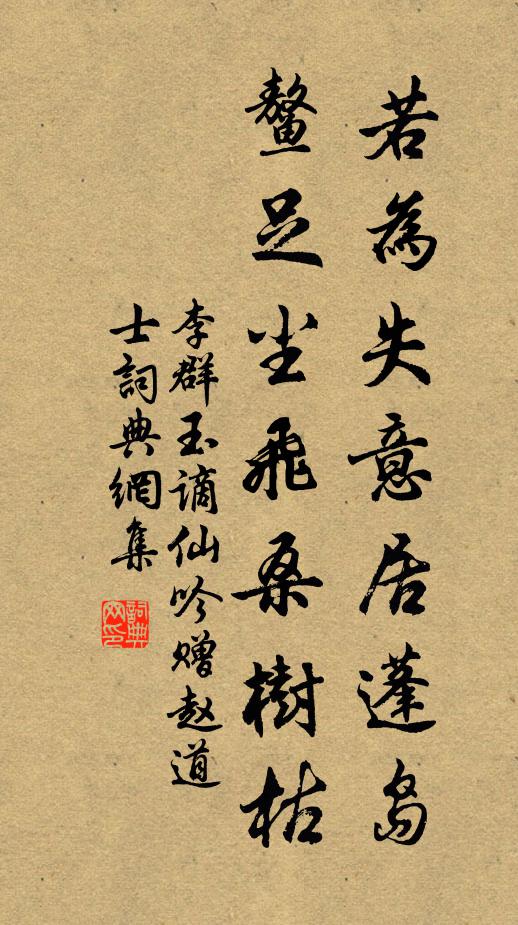 若為失意居蓬島
鳌足尘飛桑樹枯
李群玉謫仙吟赠赵道
士詞典網集
詞典网印